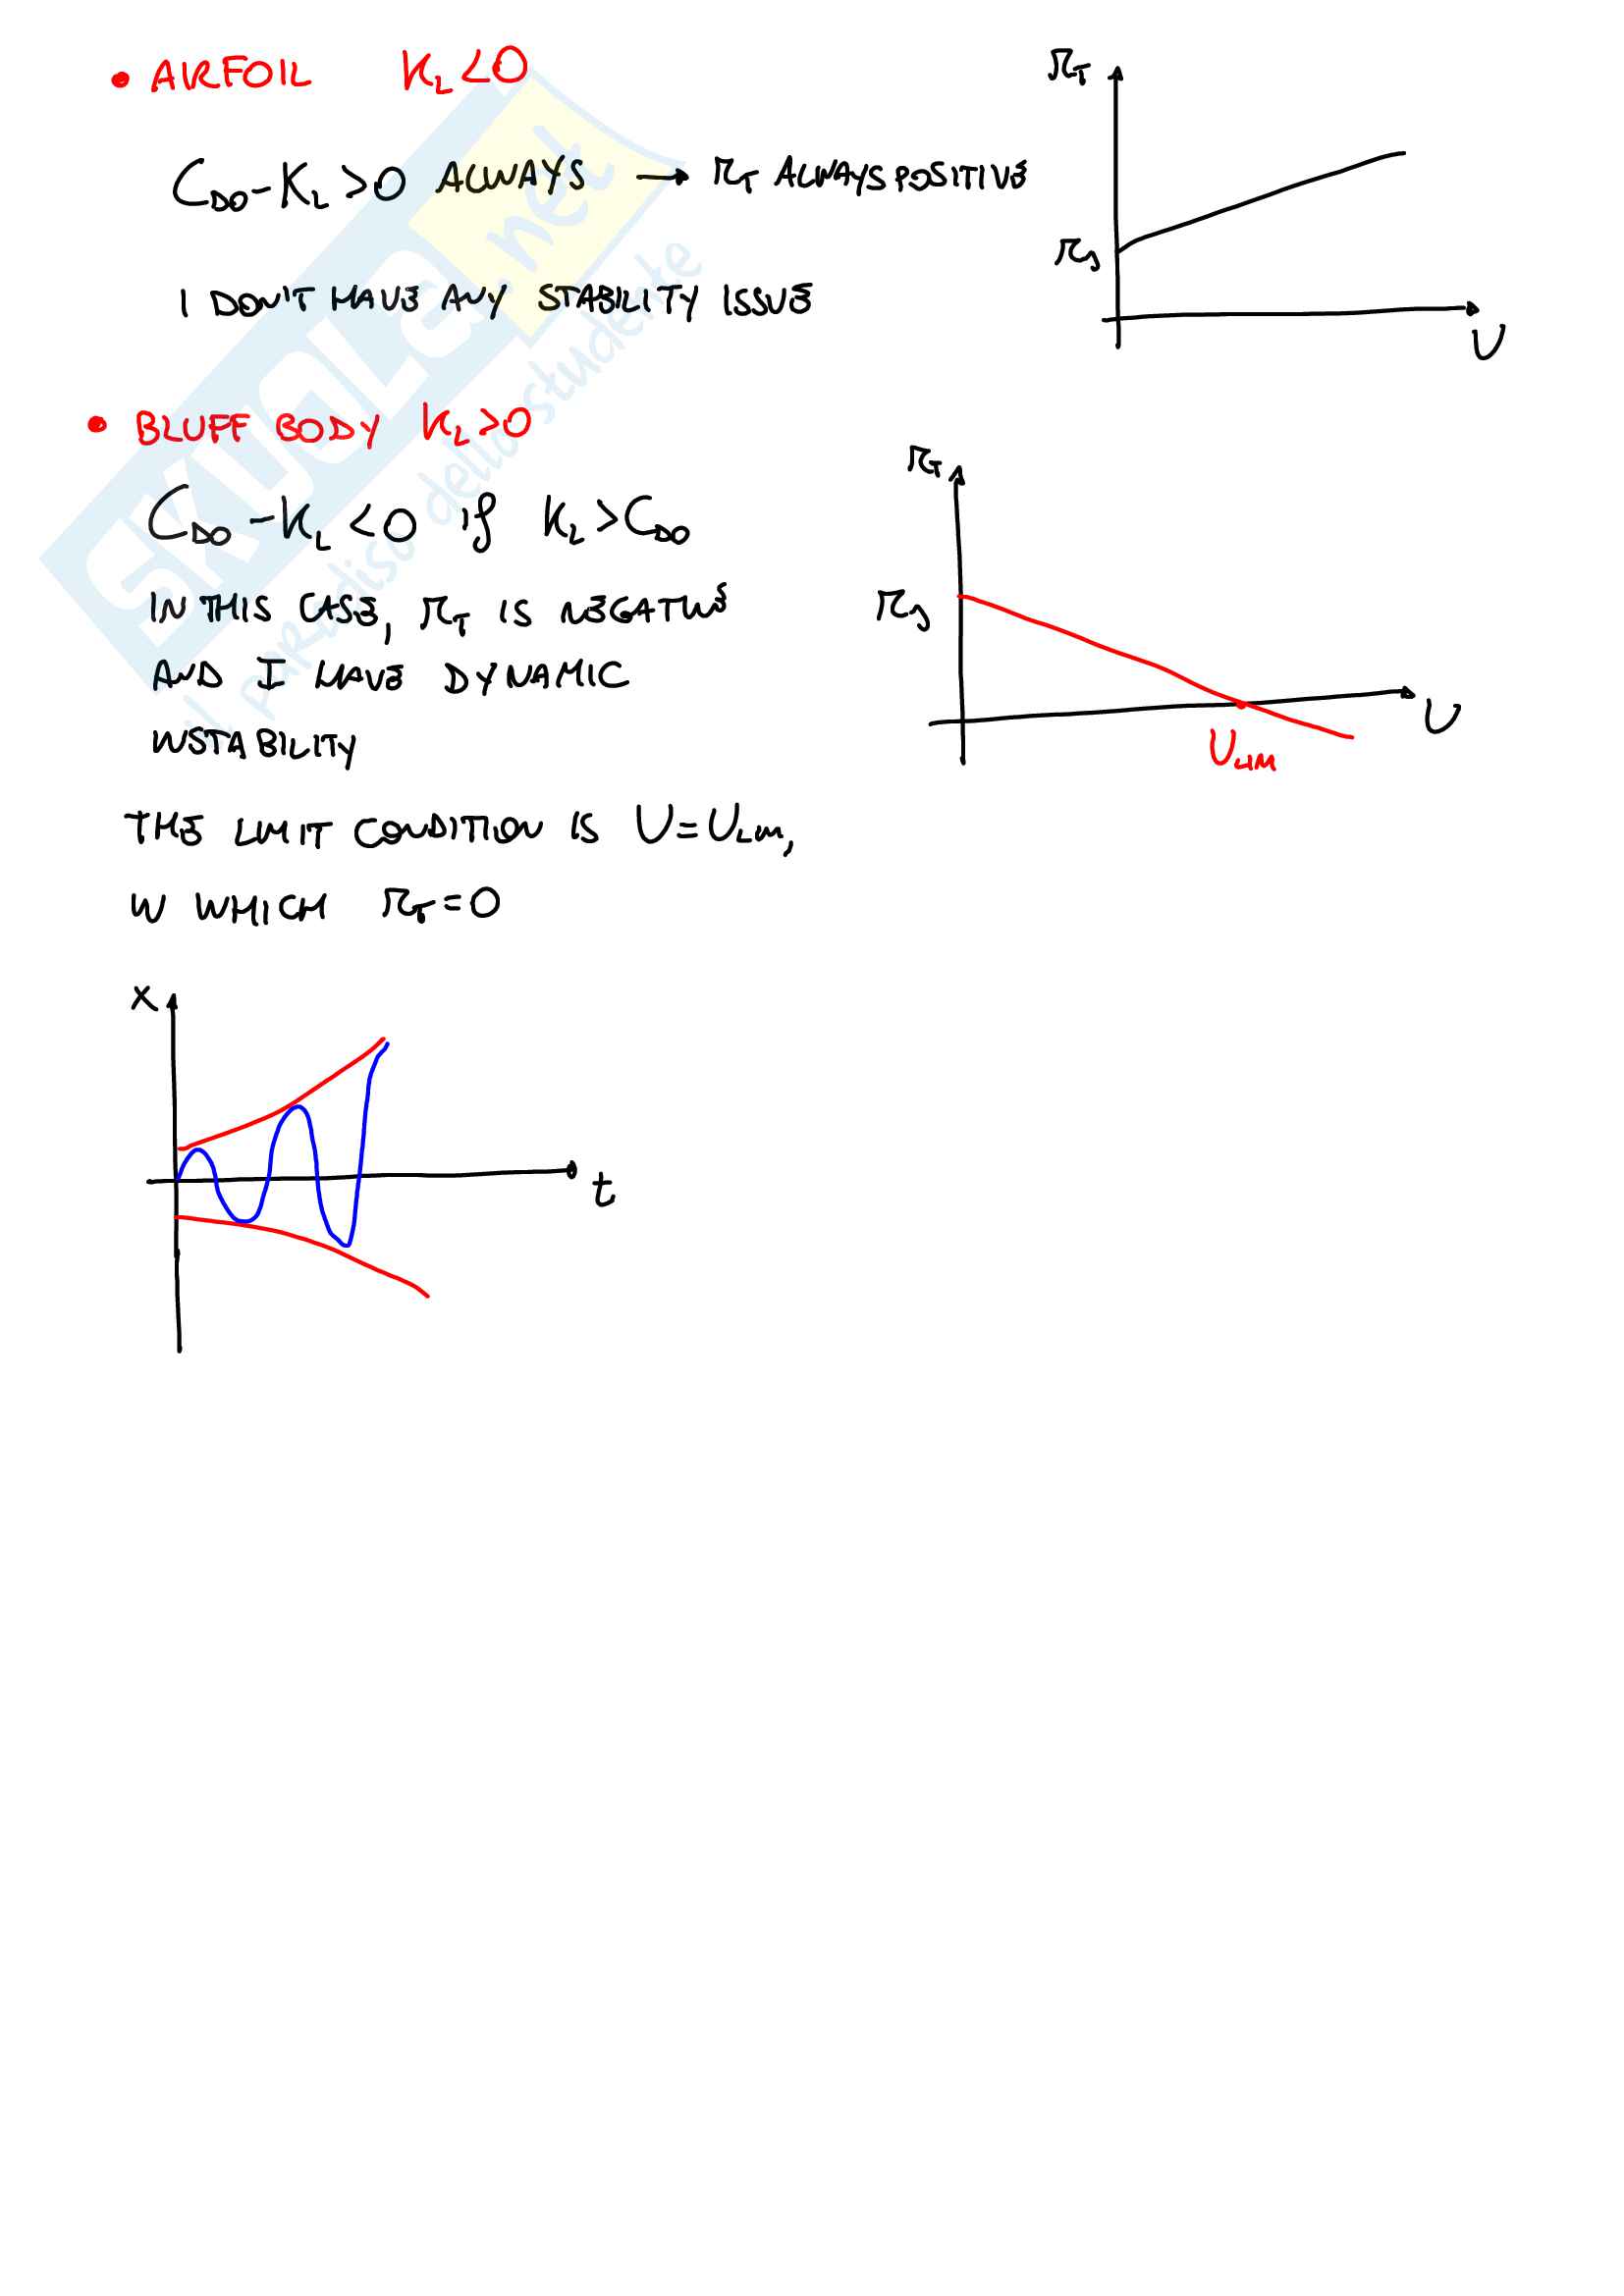 • AIRFOIL K_L<0
C_D0-K_L>0 ALWAYS → r_T ALWAYS POSITIVE
I DON'T HAVE ANY STABILITY ISSUE
r_T
r_s
U
• BLUFF BODY K_L>0
C_D0-K_L<0 if K_L>C_D0
IN THIS CASE, r_T IS NEGATIVE
AND I HAVE DYNAMIC
INSTABILITY
r_T
r_s
U
U_LIM
THE LIMIT CONDITION IS U=U_LIM,
IN WHICH r_T=0
x
t
SKUOLA.net
il paradiso dello studente